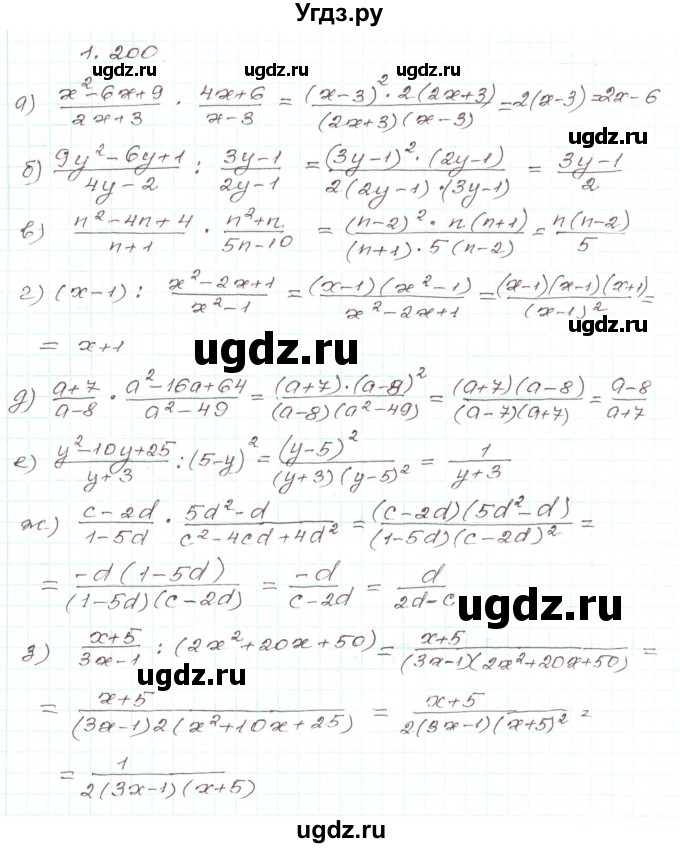 Угдз.ру
1.200
ugdz.ru ugdz.ru
а) (x²-6x+9)/(2x+3) · (4x+6)/(x-3) = ((x-3)²·2(2x+3))/((2x+3)(x-3)) = 2(x-3) = 2x-6
ugdz.ru
б) (9y²-6y+1)/(4y-2) : (3y-1)/(2y-1) = ((3y-1)²·(2y-1))/(2(2y-1)·(3y-1)) = (3y-1)/2
в) (n²-4n+4)/(n+1) · (n²+n)/(5n-10) = ((n-2)²·n(n+1))/((n+1)·5(n-2)) = (n(n-2))/5
г) (x-1) : (x²-2x+1)/(x²-1) = ((x-1)(x²-1))/(x²-2x+1) = ((x-1)(x-1)(x+1))/(x-1)² =
ugdz.ru
= x+1
ugdz.ru
д) (a+7)/(a-8) · (a²-16a+64)/(a²-49) = ((a+7)·(a-8)²)/((a-8)(a²-49)) = ((a+7)(a-8))/((a-7)(a+7)) = (a-8)/(a+7)
е) (y²-10y+25)/(y+3) : (5-y)² = (y-5)²/((y+3)(y-5)²) = 1/(y+3)
ж) (c-2d)/(1-5d) · (5d²-d)/(c²-4cd+4d²) = ((c-2d)(5d²-d))/((1-5d)(c-2d)²) =
= (-d(1-5d))/((1-5d)(c-2d)) = (-d)/(c-2d) = d/(2d-c)
ugdz.ru
з) (x+5)/(3x-1) : (2x²+20x+50) = (x+5)/((3x-1)(2x²+20x+50)) =
ugdz.ru
= (x+5)/((3x-1)2(x²+10x+25)) = (x+5)/(2(3x-1)(x+5)²) =
ugdz.ru
= 1/(2(3x-1)(x+5))
ugdz.ru
ugdz.ru